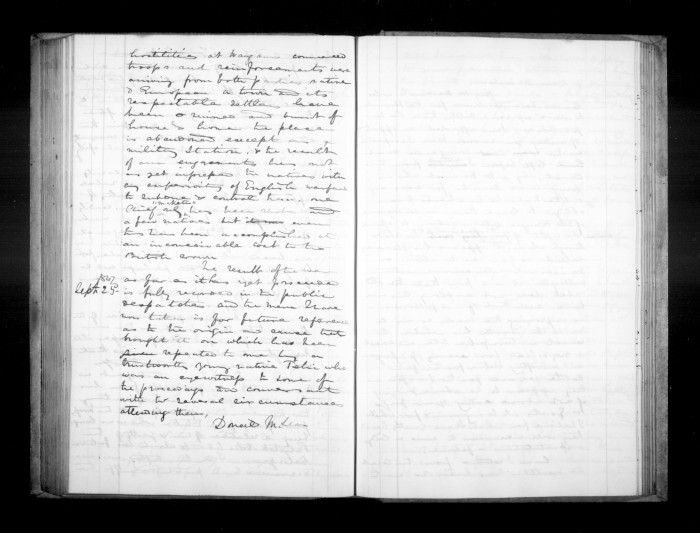 hostilities at commenced
troops and reinforcements were
arriving from both parties native
& European a town and its
respectable settlers have
been ruined and burnt of
house & home the place
is abandoned except as a
military Station, & the results
of our engagements has not
as yet impressed the natives with
any superiority of English warfare
to subdue & control him, one
Chief only has been shot and
a few natives but it even
this has been accomplished at
an inconceivable cost to the
British crown
The results of the war
as far as it has yet proceeded
Septr 25 is fully recorded in the public
despatches and the more I have
now written is for future reference
as to the origin and cause that
brought it on which has been
repeated to me by a
trustworthy young native who
was an eyewitness to some of
the proceedings and conversant
with the several circumstances
attending them,
Donald McLean